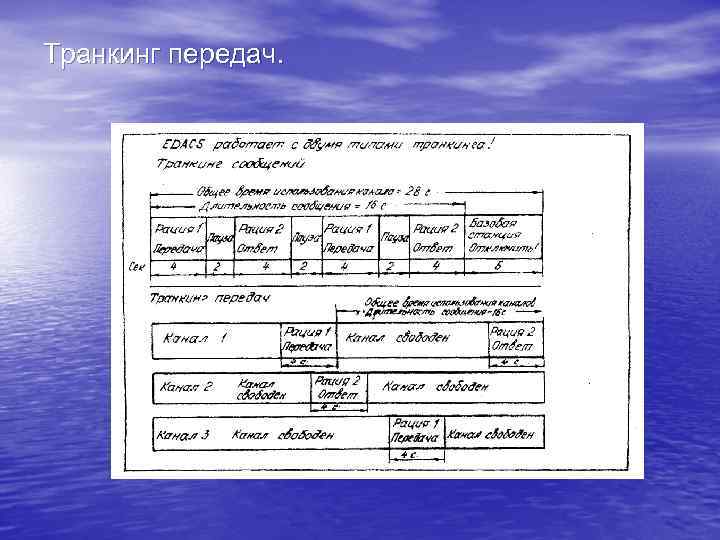 Транкинг передач.
EDACS работает с двумя типами транкинга!
Транкинг сообщений
Общее время использования канала = 28 с
Длительность сообщения = 16 с
Рация 1 Передача
Пауза
Рация 2 Ответ
Пауза
Рация 1 Передача
Пауза
Рация 2 Ответ
Базовая станция Отключить!
Сек 4 2 4 2 4 2 4 6
Транкинг передач
Общее время использования каналов
Длительность сообщения=16с
Канал 1
Рация 1 Передача
Канал свободен
Рация 2 Ответ
4 с.
4 с.
Канал 2
Канал свободен
Рация 2 Ответ
Канал свободен
4 с.
Канал 3
Канал свободен
Рация 1 Передача
Канал свободен
4 с.